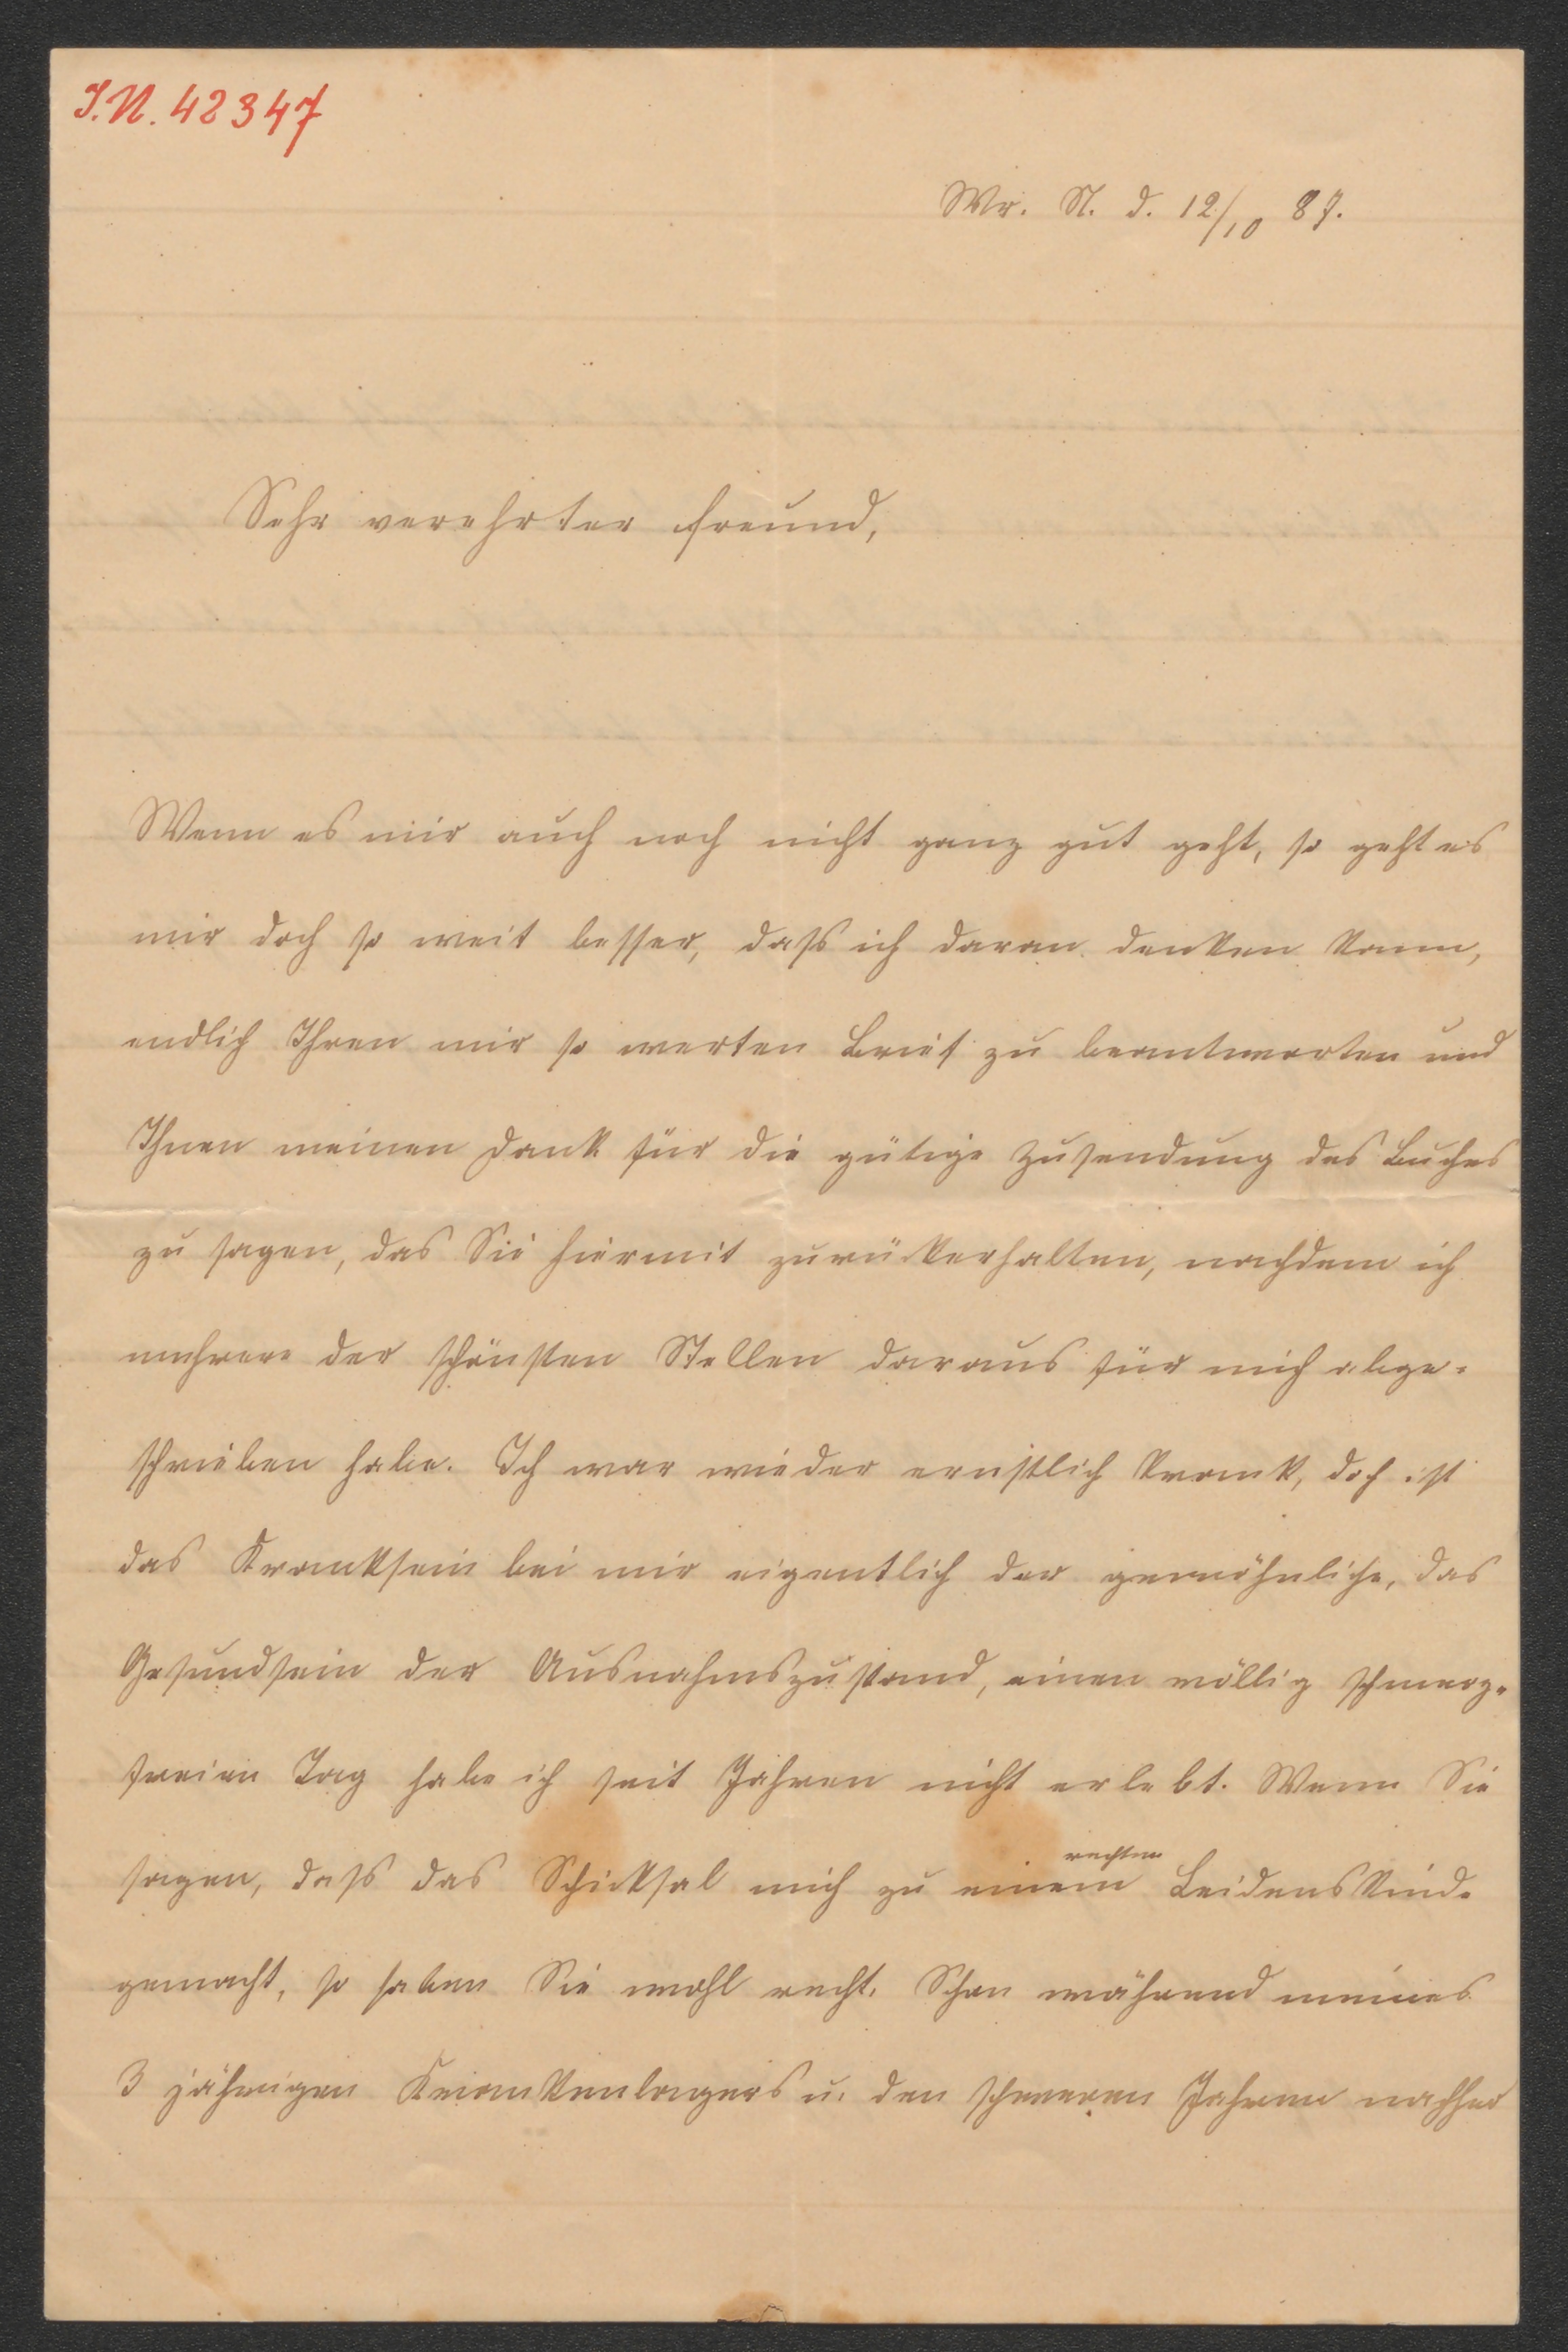 I.N. 42347
Wr. N. d. 12/10 87.
Sehr verehrter Freund,
Wenn es mir auch noch nicht ganz gut geht, so geht es
mir doch so weit besser, dass ich daran denken kann,
endlich Ihren mir so werten Brief zu beantworten und
Ihnen meinen Dank für die gütige Zusendung des Buches
zu sagen, das Sie hiermit zurükerhalten, nachdem ich
mehrere der schönsten Stellen daraus für mich abge-
schrieben habe. Ich war wieder ernstlich krank, doch ist
das Kranksein bei mir eigentlich der gewöhnliche, das
Gesundsein der Ausnahmszustand, einen völlig schmerz-
freien Tag habe ich seit Jahren nicht erlebt. Wenn Sie
rechten
sagen, dass das Schicksal mich zu einem Leidenskinde
gemacht, so haben Sie wohl recht. Schon während meines
3 jährigen Krankenlagers u. den schweren Jahren nachher